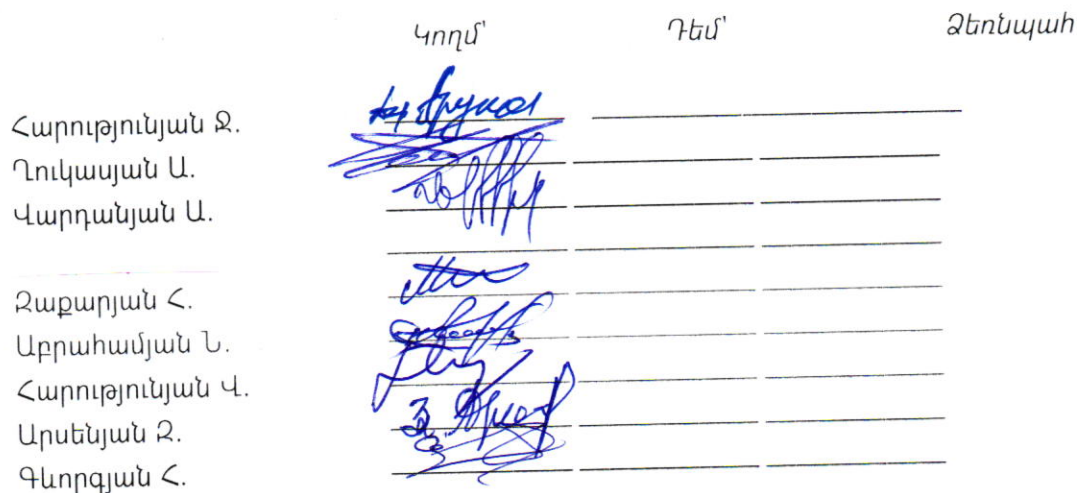 Կողմ՝ Դեմ՝ Ձեռնպահ
Հարությունյան Ջ.
Ղուկասյան Ա.
Վարդանյան Ա.
Զաքարյան Հ.
Աբրահամյան Ն.
Հարությունյան Վ.
Արսենյան Զ.
Գևորգյան Հ.